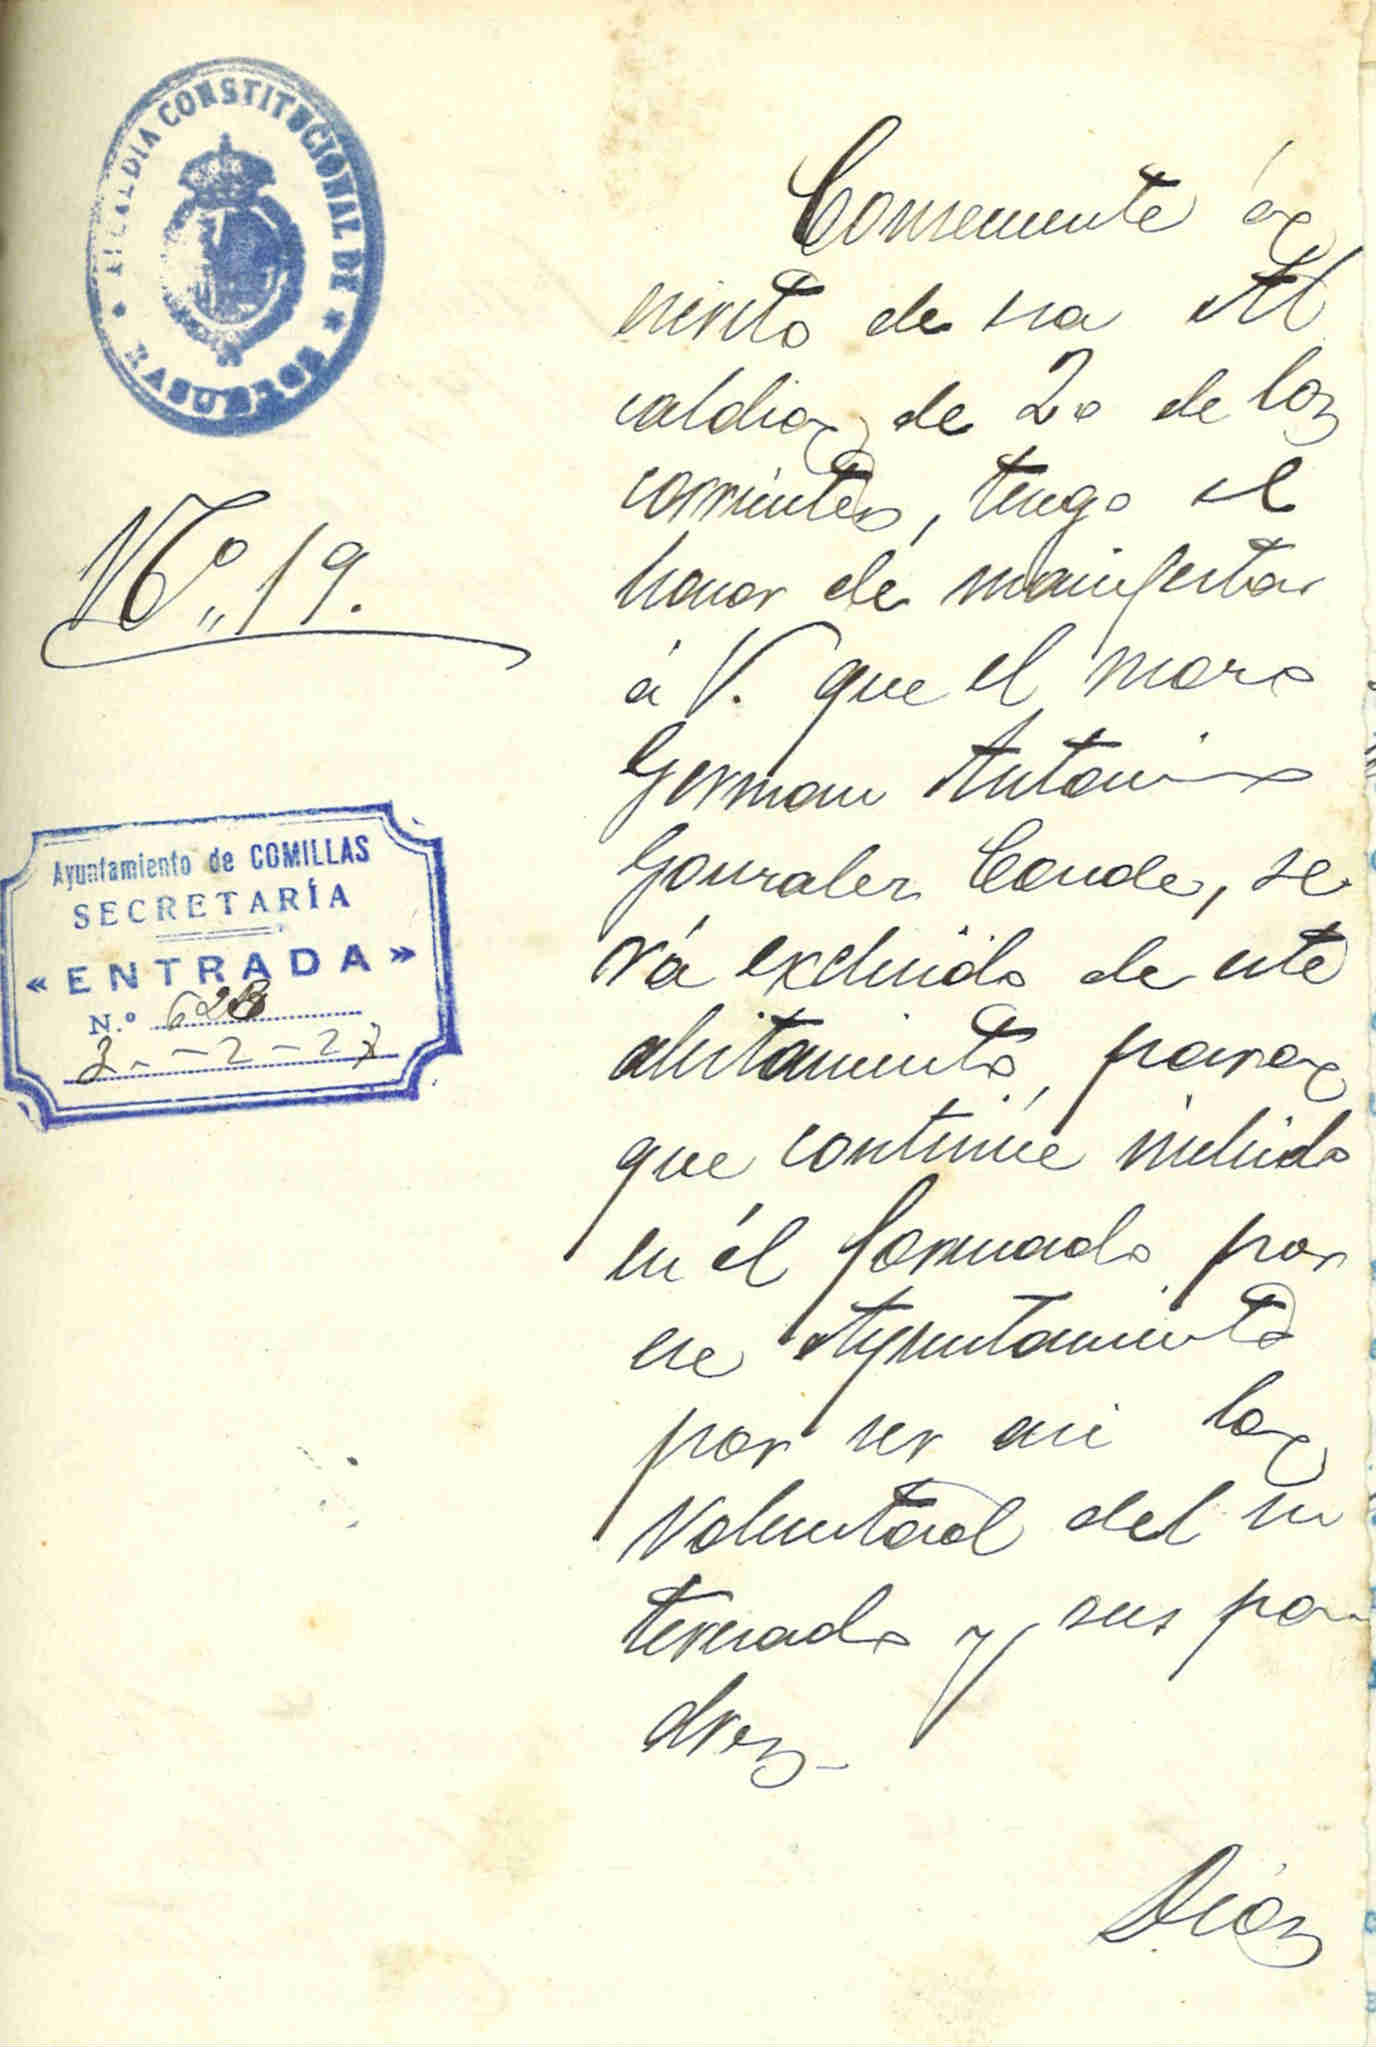 ALCALDIA CONSTITUCIONAL DE
RASUEROS
Nº„ 19.
Ayuntamiento de COMILLAS
SECRETARÍA
« ENTRADA »
N.º 628
3 - 2 - 27
Consecuente á
escrito de esa Al
caldia de 20 de los
corrientes, tengo el
honor de manifestar
á V. que el mozo
German Antonio
Gonzalez Conde, se
rá excluido de este
alistamiento, para
que continúe incluido
en él formado por
ese Ayuntamiento
por ser asi la
voluntad del in
teresado y sus pa
dres.-
Dios